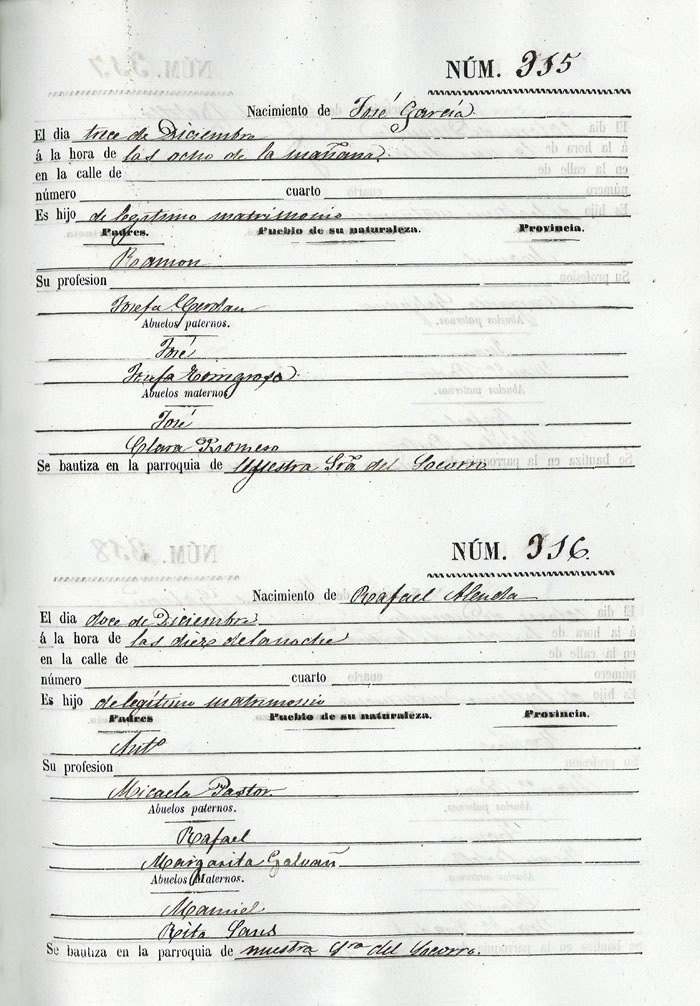 NÚM. 315
Nacimiento de José García
El dia trece de Diciembre
á la hora de las ocho de la mañana.
en la calle de
número cuarto
Es hijo de legitimo matrimonio
Padres. Pueblo de su naturaleza. Provincia.
Ramon
Su profesion
Josefa Cerdan
Abuelos paternos.
José
Josefa
Abuelos maternos
José
Clara Romero
Se bautiza en la parroquia de Nuestra Sra del Socorro
NÚM. 316
Nacimiento de Rafael Alenda
El dia doce de Diciembre
á la hora de las diez de la noche
en la calle de
número cuarto
Es hijo de legitimo matrimonio
Padres Pueblo de su naturaleza. Provincia.
Anto
Su profesion
Micaela Pastor.
Abuelos paternos.
Rafael
Margarita Galvañ
Abuelos Maternos.
Manuel
Rita Sans
Se bautiza en la parroquia de nuestra Sra del Socorro.